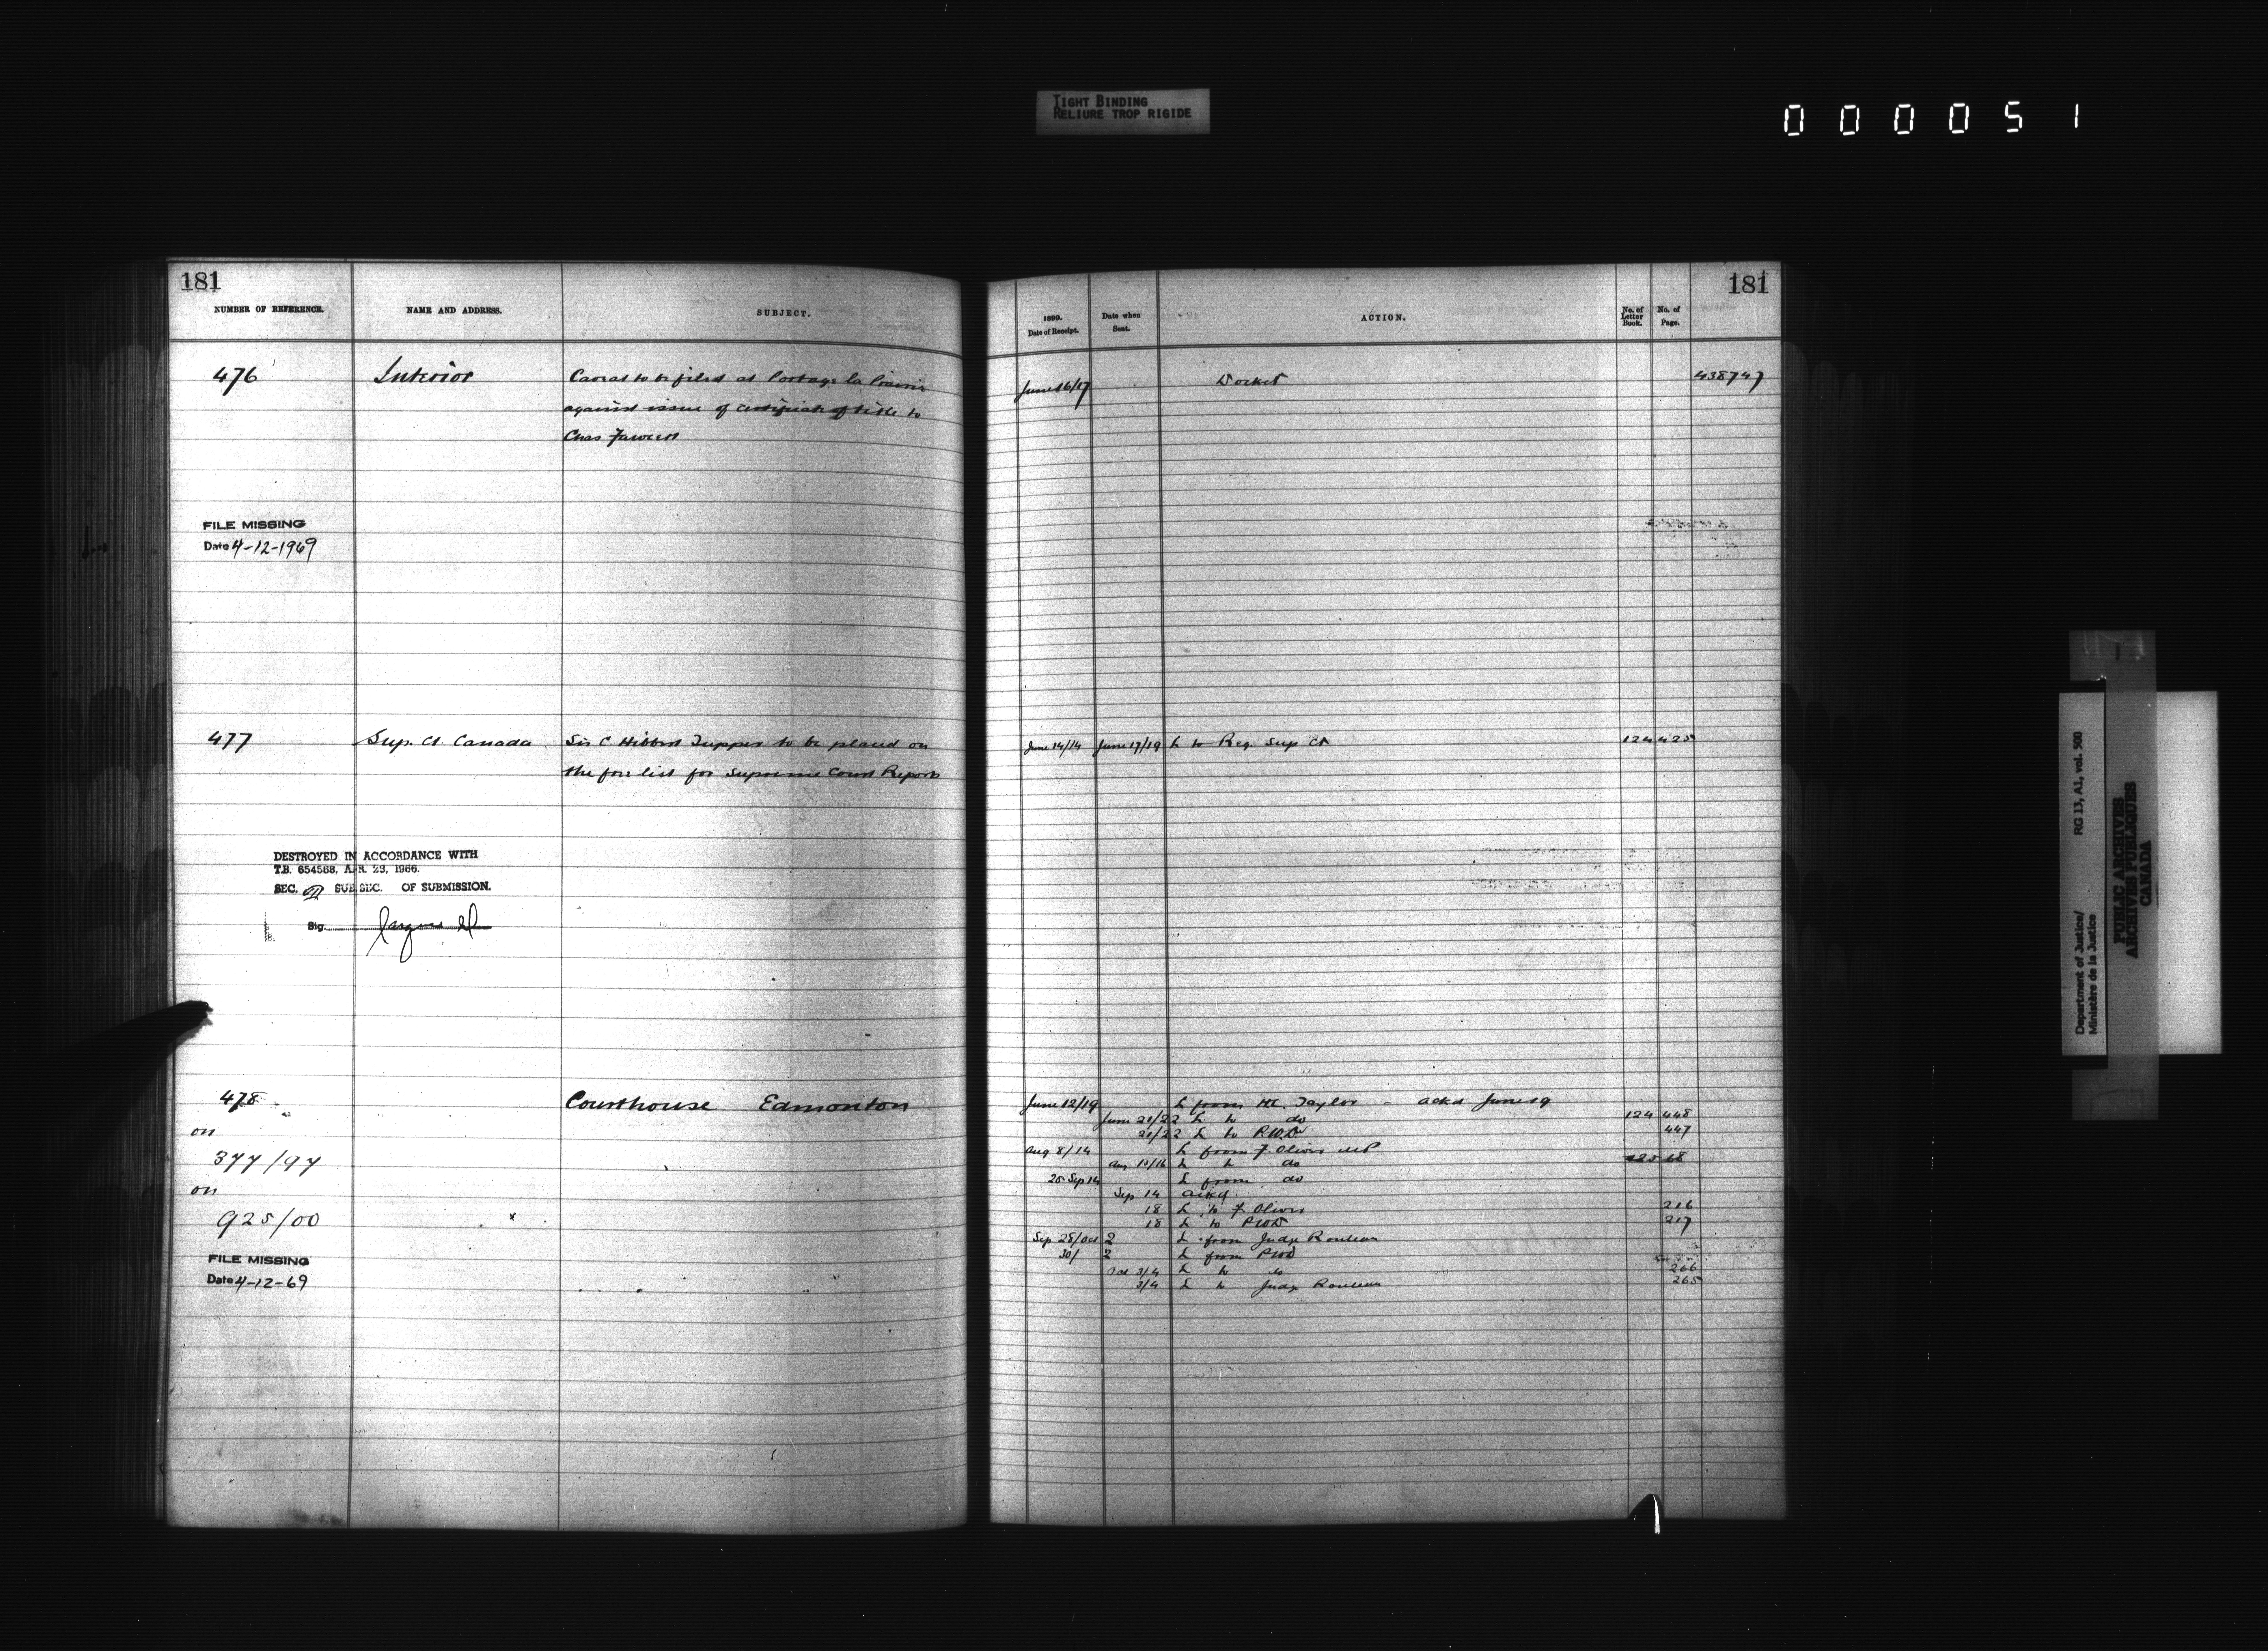 TIGHT BINDING
RELIURE TROP RIGIDE
000051
181
NUMBER OF REFERENCE.
NAME AND ADDRESS.
SUBJECT.
476
Interior
Caveat to be filed at Portage la Prairie
against issue of certificate of title to
Chas Fawcett
FILE MISSING
Date 4-12-1969
477
Sup. Ct. Canada
Sir C Hibbert Tupper to be placed on
the free list for Supreme Court Reports
DESTROYED IN ACCORDANCE WITH
T.B. 654568, APR. 23, 1966.
SEC. SUB.SEC. OF SUBMISSION.
Sig.
478
Courthouse Edmonton
on
377/97
on
925/00
x
FILE MISSING
Date 4-12-69
181
1899.
Date of Receipt.
Date when
Sent.
ACTION.
No. of
Letter
Book.
No. of
Page.
June 16/17 Docket 438747
June 14/14 June 17/19 L to Reg. Sup Ct 124 425
June 12/19 L from Taylor - ackd June 19
June 21/22 L to do 124 448
21/22 L to P.W.D 447
Aug 8/14 L from F. Oliver MP
Aug 15/16 L to do 125 18
25 Sep 14 L from do
Sep 14 ackd.
18 L to F. Oliver 216
18 L to PWD 217
Sep 28/Oct 2 L from Judge Rouleau
30/ 2 L from PWD
Oct 3/4 L to do 266
3/4 L to Judge Rouleau 265
Department of Justice/ RG 13, A1, vol. 500
Ministère de la Justice
PUBLIC ARCHIVES
ARCHIVES PUBLIQUES
CANADA